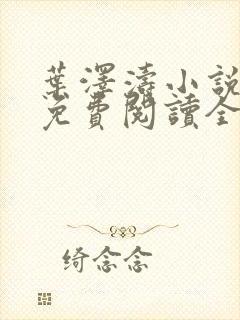 葉澤濤小說
免費閱讀全
绮念念